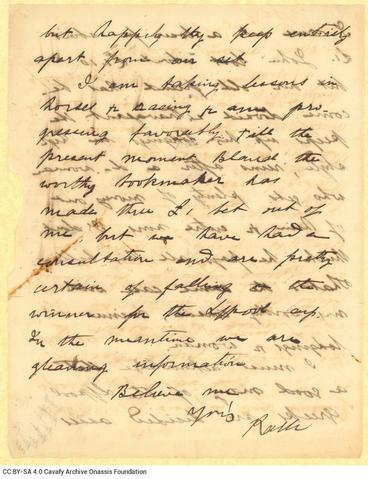 but happily they keep entirely
apart from our set
I am taking lessons in
horses & racing & am pro-
gressing favorably, till the
present moment Bland the
worthy bookmaker has
made three £1 bet out of
me but we have had a
consultation and are pretty
certain of falling on the
winner for the L'pool cup.
In the meantime we are
gleaning information
Believe me
Yrs
Ralli
CC BY-SA 4.0 Cavafy Archive Onassis Foundation